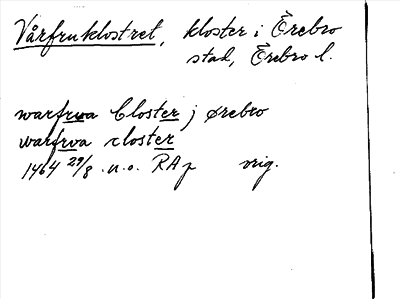 Vårfruklostret, kloster i Örebro
stad, Örebro l.
warfrwa Closter j ørebro
warfrwa closter
1464 29/8 u.o. RAp orig.